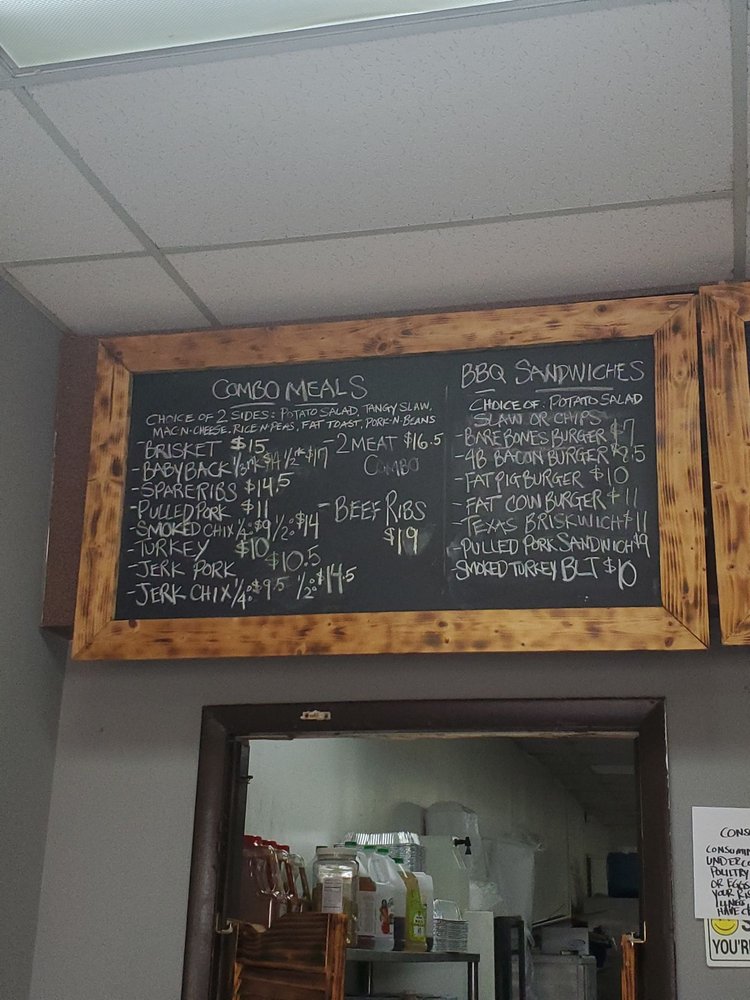 COMBO MEALS
CHOICE OF 2 SIDES: POTATO SALAD, TANGY SLAW,
MAC-N-CHEESE, RICE N PEAS, FAT TOAST, PORK-N-BEANS
-BRISKET $15
-BABYBACK 1/3rk $14 1/2rk $17
-SPARERIBS $14.5
-PULLED PORK $11
-SMOKED CHIX 1/4: $9 1/2: $14
-TURKEY $10
-JERK PORK $10.5
-JERK CHIX 1/4: $9.5 1/2: $14.5
-2 MEAT $16.5
COMBO
-BEEF RIBS
$19
BBQ SANDWICHES
CHOICE OF: POTATO SALAD
SLAW OR CHIPS
-BARE BONES BURGER $7
-4B BACON BURGER $8.5
-FAT PIG BURGER $10
-FAT COW BURGER $11
-TEXAS BRISKWICH $11
-PULLED PORK SANDWICH $9
-SMOKED TURKEY BLT $10
UNDERCO
POULTRY
OR EGGS
YOUR RIS
HAVE C
YOU'RE